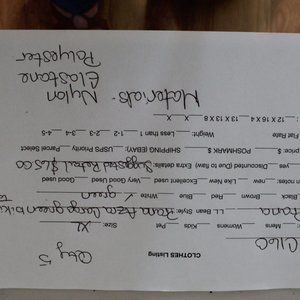 CLOTHES Listing
Qty 5
Mens __ Womens __ Kids __ Pet __ Size: XL
Prana __ LL Bean Style:
Black __ Brown __ Red __ Blue __ White ✓ green
notes: __ new __ Like New __ excellent used __ Very Good used __ Good used
__ yes __ discounted (due to flaw) Extra details: Suggested Retail
price: $ __ POSHMARK $ __ SHIPPING (EBAY): USPS: __ Priority __ Parcel Select
Flat Rate Weight: __ Less than 1 __ 1-2 __ 2-3 __ 3-4 __ 4-5
: __ 12 X 16 X 4 __ 13 X 13 X 8 __ X __ X
Materials: Nylon
Elastane
Polyester